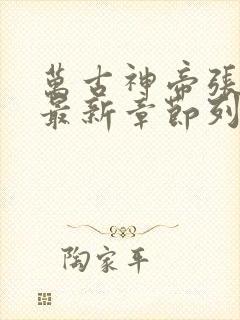 萬古神帝張
最新章節列
陶家平